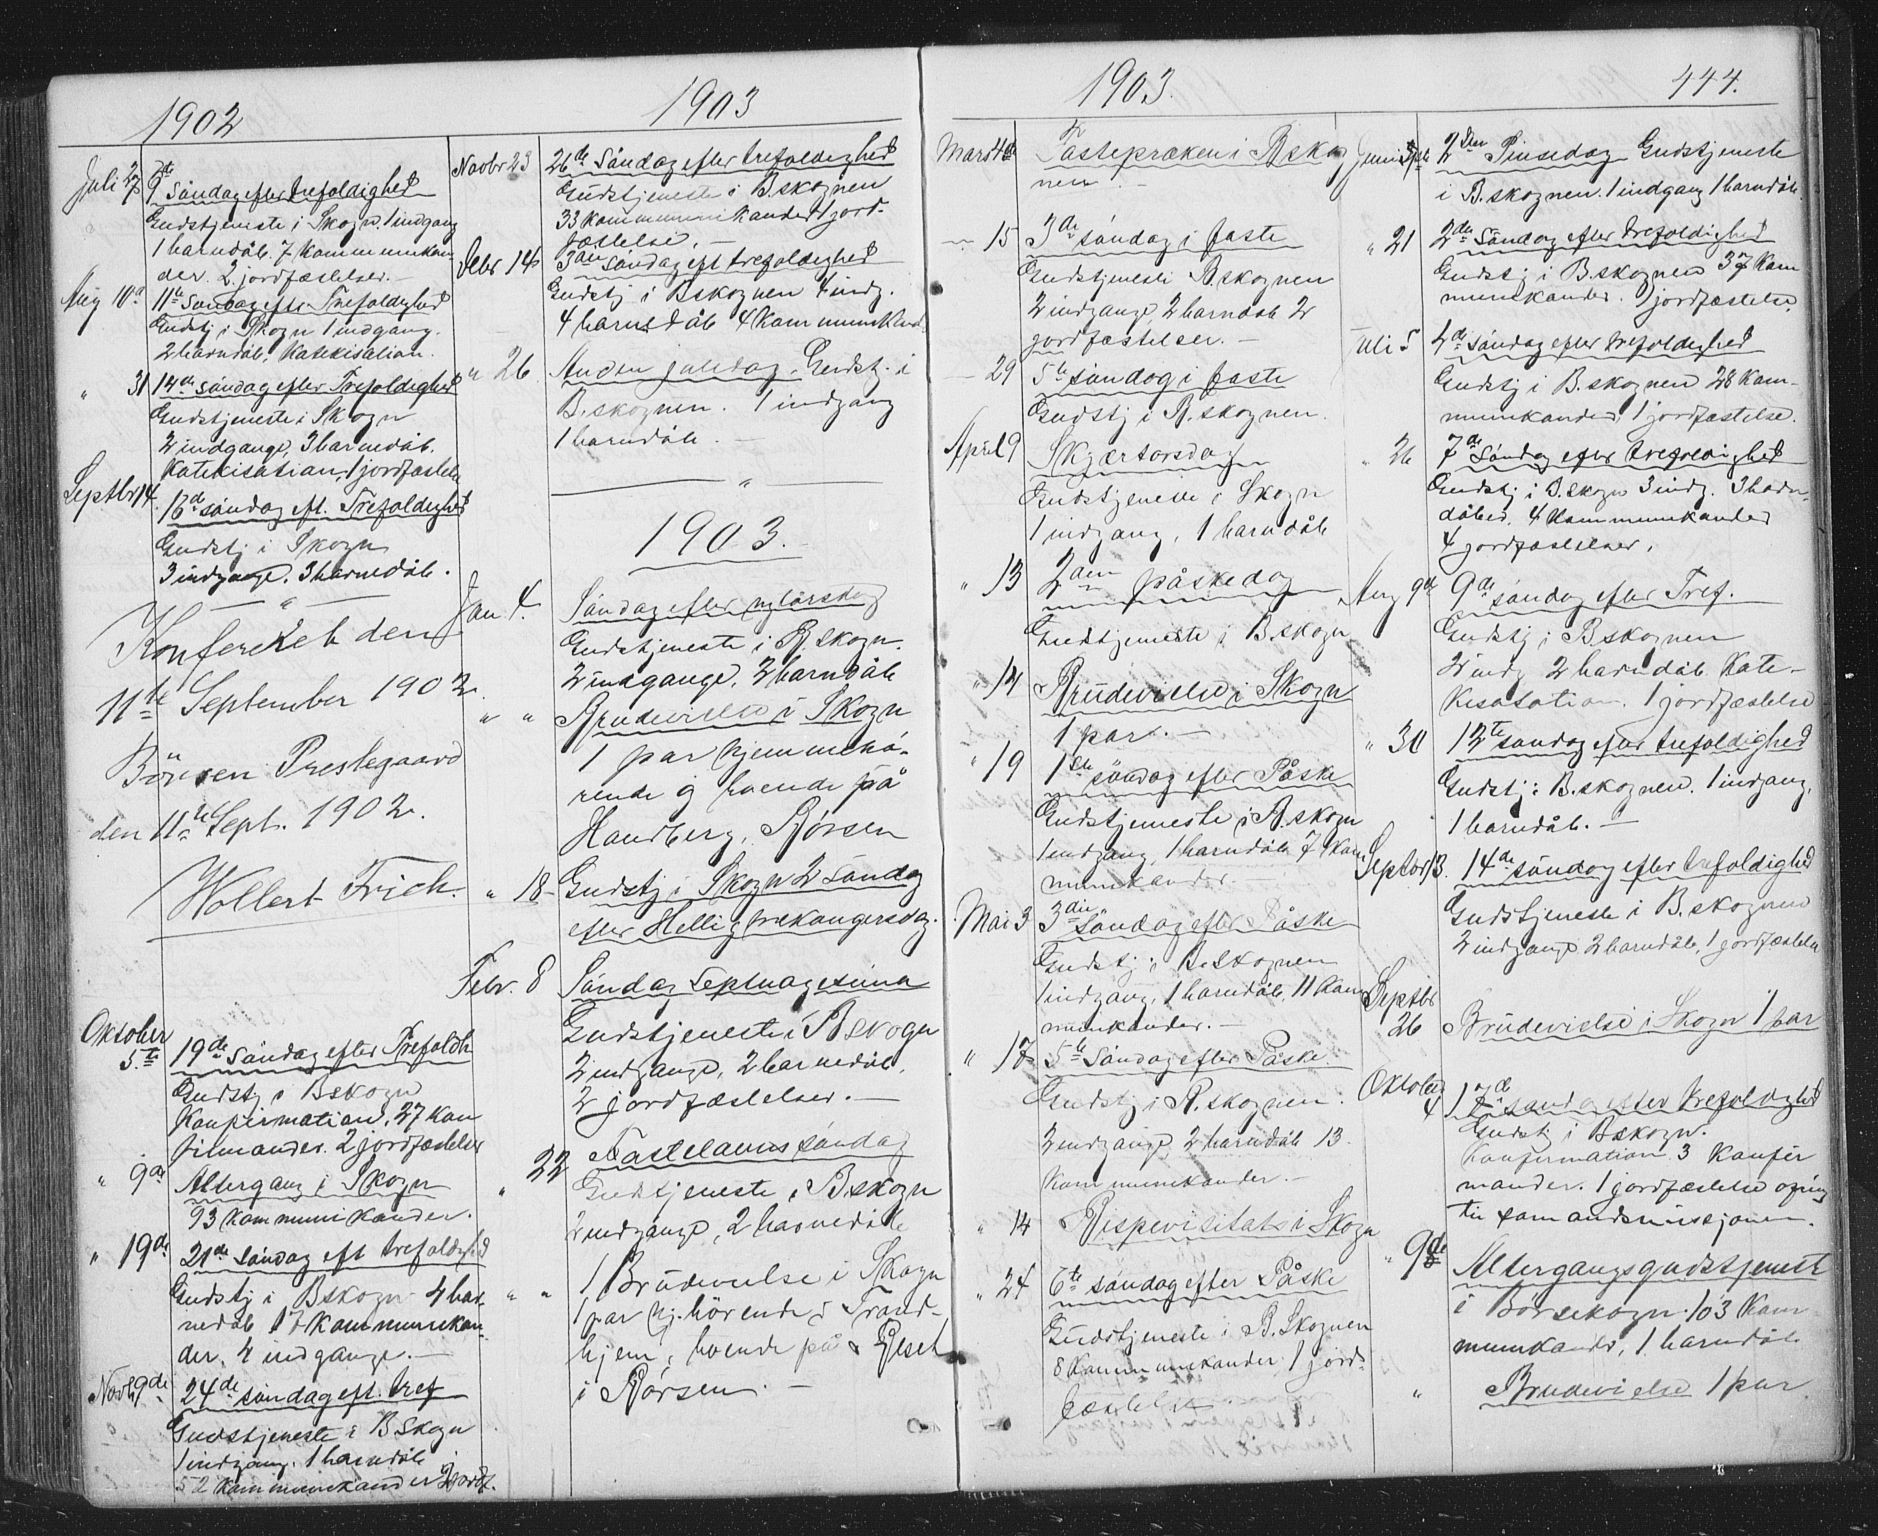 1902
Juli 27 9de Söndag efter trefoldighed
Gudstjeneste i Skogn 1 indgang
1 barndåb. 7 kommunikan
der. 2 jordfæstelser.
Aug 10de 11te Söndag eftr Trefoldighed
Gudstj i Skogn 1 indgang.
2 barndåb. Katekisation.
" 31 14de söndag efter Trefoldighed
Gudstjeneste i Skogn
2 indgange, 3 barnedåb.
Katekisation, 1 jordfæstelse
Septbr 14. 16de söndag eft. Trefoldighed
Gudstj i Skogn
3 indgange. 3 barnedåb.
— " —
Konfereret den
11te September 1902.
Börsen Prestegaard
den 11te Sept. 1902.
Wollert Frich.
Oktober
5te 19de Söndag efter Trefoldh
Gudstj i Bskogn
Konfirmation. 27 kon
firmander. 2 jordfæstelser
" 9de Altergang i Skogn
93 kommunikander.
" 19de 21de Söndag eft trefoldighed
Gudstj i Bskogn 4 bar-
nedåb 17 kommunikan-
der. 4 indgange. —
Novb 9de 24de söndag eft. tref
Gudstjeneste i BSkogn
1 indgang. 1 barndåb
52 kommunikander 2 jordf.
1903
Novbr 23 26de Söndag efter trefoldighed
Gudstjeneste i B.skognen
33 kommunikander 1 jord-
fæstelse. —
Debr 14 3die söndag eft trefoldighed
Gudstj i Bskognen 4 indg.
4 barnedåb 4 kommunikand.
" 26 Anden juledag. Gudstj. i
B.skognen. 1 indgang
1 barndåb. —
— " —
1903.
Jan. 4. Söndag efter nytårsdag
Gudstjeneste i B.skogn.
2 indgange, 2 barndåb
" " Brudevielse i Skogn
1 par hjemmehö-
rende og boende på
Handberg, Börsen
" 18 Gudstj i Skogn 2 söndag
efter Hellig trekongersdag.
Febr. 8 Söndag Septuagesima
Gudstjeneste i Bskogn
2 indgange, 2 barnedåb,
2 jordfæstelser. —
" 22 Fastelavns söndag
Gudstjeneste i B.skogn
2 indgange, 2 barnedåb
" " 1 Brudevielse i Skogn
1 par hj. hörende i Trond-
hjem, boende på
i Börsen. —
1903.
444.
Mars 4de Fastepræken i Bskog
nen —
— 15 3de söndag i faste
Gudstjeneste B.skognen
2 indgange, 2 barndåb 2
jordfæstelser. —
— 29 5te söndag i faste
Gudstj i B.skognen.
April 9 Skjærtorsdag
Gudstjeneste i Skogn
1 indgang, 1 barndåb
" 13 2den påskedag
Gudstjeneste i B.skogn
" 14 Brudevielse i Skogn
1 par. —
" 19 1ste söndag efter Påske
Gudstjeneste i B.skogn
1 indgang, 1 barndåb 7 kom
munikander.
Mai 3 3die Söndag efter Påske
Gudstj i B.Skognen
1 indgang, 1 barndåb, 11 kom
munikander. —
" 17 5te Söndag efter Påske
Gudstj i B.skognen.
2 indgange, 2 barndåb 13.
kommunikander. —
" 14 Bispevisitats i Skogn
" 24 6te söndag efter Påske
Gudstjeneste i B.Skognen
8 kommunikander 1 jord-
fæstelse.
Juni 2den Pinsedag Gudstjeneste
i B.skognen. 1 indgang 1 barndåb
" 21 2den Söndag efter trefoldighed
Gudstj i Bskognen 37 kom
munikander. 1 jordfæstelse.
Juli 5 4de Söndag efter trefoldighed
Gudstj i B.skognen 28 kom-
munikander, 1 jordfæstelse.
" 26 7de Söndag efter trefoldighed
Gudstj i B.skogn 3 indg. 3 barn-
dåber. 4 kommunikander
4 jordfæstelser.
Aug 9de 9de söndag efter Tref.
Gudstj i Bskognen
2 indg 2 barndåb. Kate-
kisasation. 1 jordfæstelse
" 30 12te söndag efter trefoldighed
Gudstj i B.skognen. 1 indgang,
1 barndåb. —
Septbr 13. 14de söndag efter trefoldighed
Gudstjeneste i B.skognen
2 indgange 2 barndåb, 1 jordfæstelse
Septbr
26 Brudevielse i Skogn 1 par
Oktober
4 17de söndag efter trefoldighed
Gudstj i Bskogn.
konfirmation 3 konfir
mander. 1 jordfæstelse
til
" 9de Altergangsgudstjenest
i Börseskogn. 103 kom-
munikander, 1 barndåb
" Brudevielse 1 par.